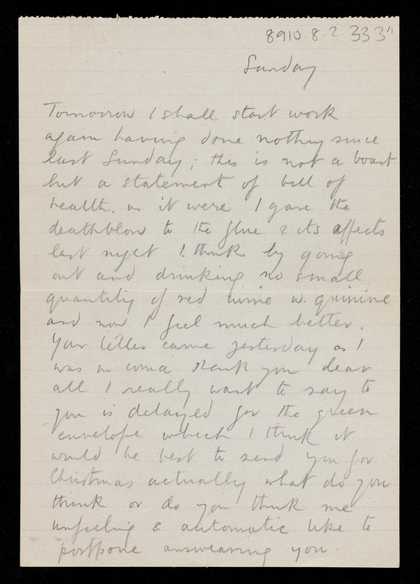 8910 8.2 333
Sunday
Tomorrow I shall start work
again having done nothing since
last Sunday; this is not a boast
but a statement of bill of
health. as it were I gave the
deathblow to the flue & its affects
last night I think by going
out and drinking no small
quantity of red wine w. quinine
and now I feel much better.
Your letter came yesterday as I
was in coma thank you dear
all I really want to say to
you is delayed for the green
envelope which I think it
would be best to send you for
Christmas actually what do you
think or do you think me
unfeeling & automatic like to
postpone answearing you.